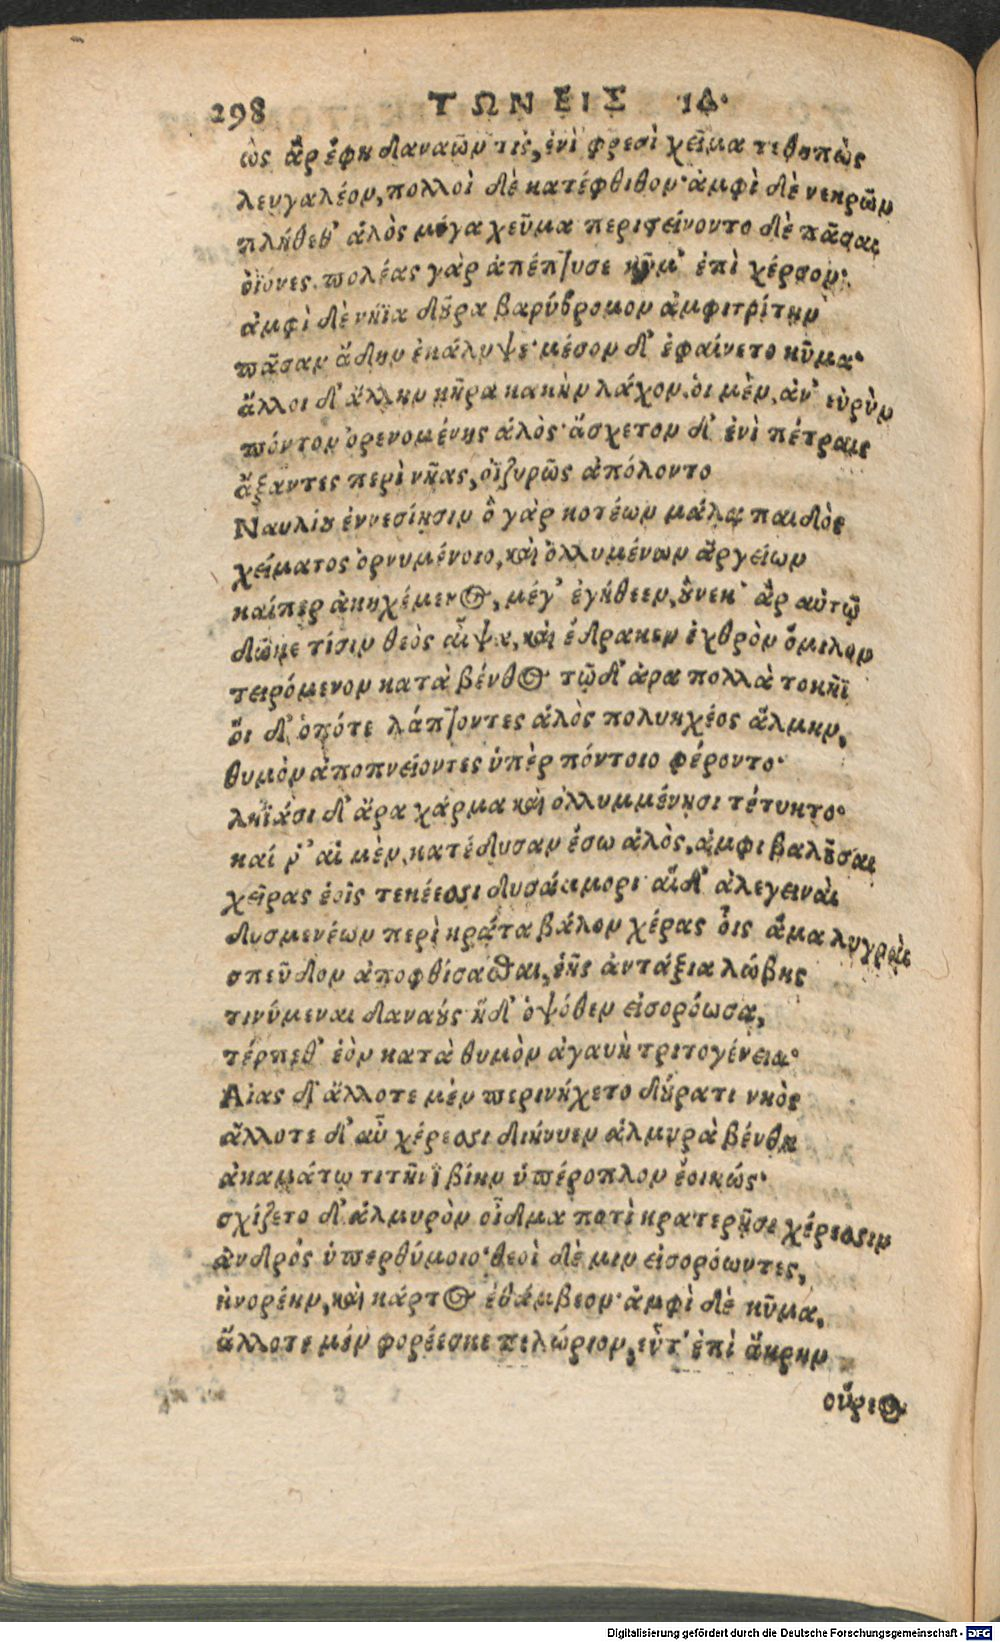 298 ΤΩΝ ΕΙΣ ΙΔ.
ὡς ἂρ ἔφη δαναῶν τις, ἐνὶ φρεσὶ χεῖμα τεθηπὼς
λευγαλέον, πολλοὶ δὲ κατέφθιθον· ἀμφὶ δὲ νεκρῶν
πλήθεθ᾽ ἁλὸς μέγα χεῦμα περιστείνοντο δὲ πᾶσαι
ὀϊόνες. πολέας γὰρ ἀπέπτυσε κῦμ᾽ ἐπὶ χέρσον·
ἀμφὶ δὲ νήϊα δοῦρα βαρύβρομον ἀμφιτρίτην
πᾶσαν ἄδην ἐκάλυψε· μέσον δ᾽ ἐφαίνετο κῦμα·
ἄλλοι δ᾽ ἄλλην κῆρα κακὴν λάχον. οἱ μὲν, ἀν᾽ εὐρὺν
πόντον ὀρενομένης ἁλὸς· ἄσχετον δ᾽ ἐνὶ πέτραις
ἄξαντες περὶ νῆας, ὀϊζυρῶς ἀπόλοντο
Ναυλίου ἐννεσίησιν ὃ γὰρ κοτέων μάλα παιδὸς
χείματος ὀρνυμένοιο, καὶ ὀλλυμένων ἀργείων
καίπερ ἀκηχέμενος, μέγ᾽ ἐγήθεεν, οὕνεκ᾽ ἂρ αὐτῷ
δῶκε τίσιν θεὸς αἶψα, καὶ ἔδρακεν ἐχθρὸν ὅμιλον
τειρόμενον κατὰ βένθος τῷ δ᾽ ἀρα πολλὰ τοκῆϊ
οἵ δ᾽ ὁπότε λάπτοντες ἁλὸς πολυηχέος ἅλμην,
θυμὸν ἀποπνείοντες ὑπὲρ πόντοιο φέροντο·
ληϊάσι δ᾽ ἄρα χάρμα καὶ ὀλλυμμένησι τέτυκτο·
καί ῥ᾽ αἱ μὲν, κατέδυσαν ἔσω ἁλὸς, ἀμφιβαλοῦσαι
χεῖρας ἑοῖς τεκέεσσι δυσάμμοροι αἵ δ᾽ ἀλεγειναὶ
δυσμενέων περὶ κρᾶτα βάλον χέρας οἷς ἅμα λυγραὶ
σπεῦδον ἀποφθίσασθαι, ἑῆς ἀντάξια λώβης
τινύμεναι δαναοὺς ἣ δ᾽ ὑψόθεν εἰσορόωσα,
τέρπεθ᾽ ἑὸν κατὰ θυμὸν ἀγαυὴ τριτογένεια·
Αἴας δ᾽ ἄλλοτε μὲν περινήχετο δούρατι νηὸς
ἄλλοτε δ᾽ αὖ χέρεσσι διήνυεν ἁλμυρὰ βένθη
ἀκαμάτῳ τιτῆνι βίην ὑπέροπλον ἐοικώς·
σχίζετο δ᾽ ἁλμυρὸν οἶδμα ποτὶ κρατερῇσι χέρεσσιν
ἀνδρὸς ὑπερθύμοιο· θεοὶ δὲ μιν εἰσορόωντες,
ἠνορέην, καὶ κάρτος ἐθάμβεον· ἀμφὶ δὲ κῦμα,
ἄλλοτε μὲν φορέεσκε πελώριον, εὖτ᾽ ἐπὶ ἄκρην
οὔρεος
Digitalisierung gefördert durch die Deutsche Forschungsgemeinschaft - DFG